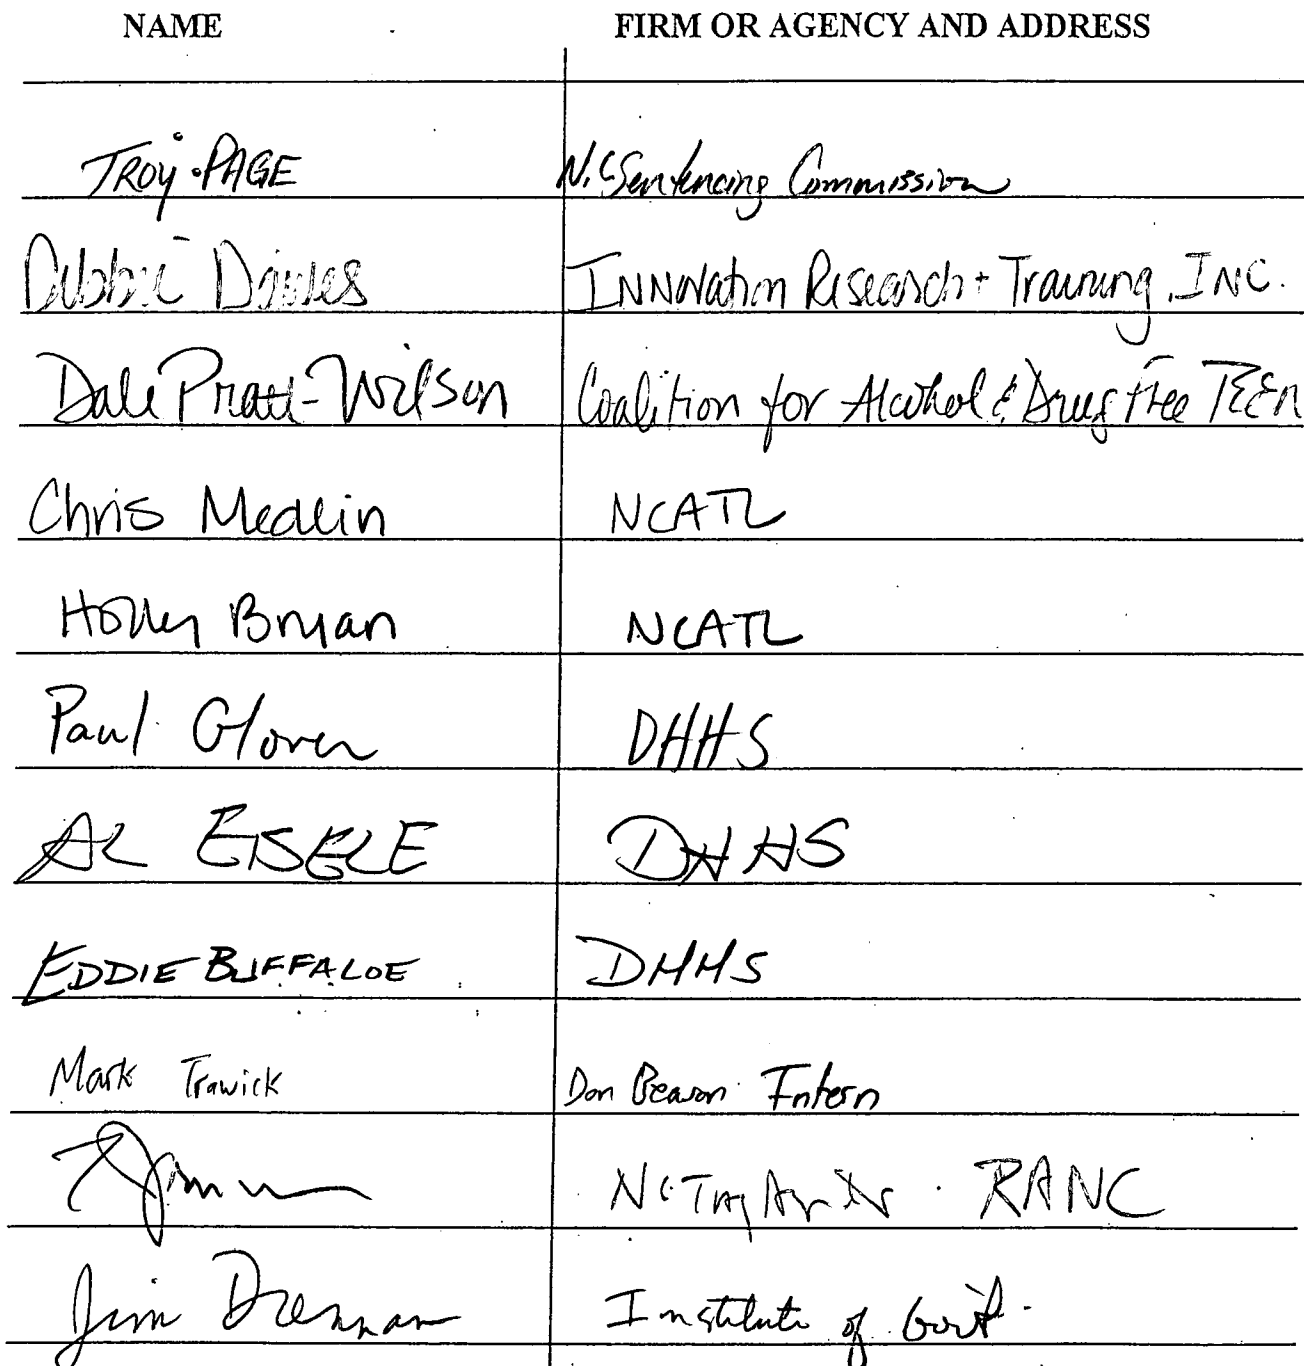 NAME FIRM OR AGENCY AND ADDRESS
TROY PAGE N.C Sentencing Commission
Debbie Dawes INNOvation Research + Training, INC.
Dale Pratt-Wilson Coalition for Alcohol & Drug Free TEEN
Chris Medlin NCATL
Holly Bryan NCATL
Paul Glover DHHS
AL EISELE DHHS
EDDIE BUFFALOE DHHS
Mark Trawick Don Beason Intern
NC RANC
Jim Drennan Institute of Gov't.